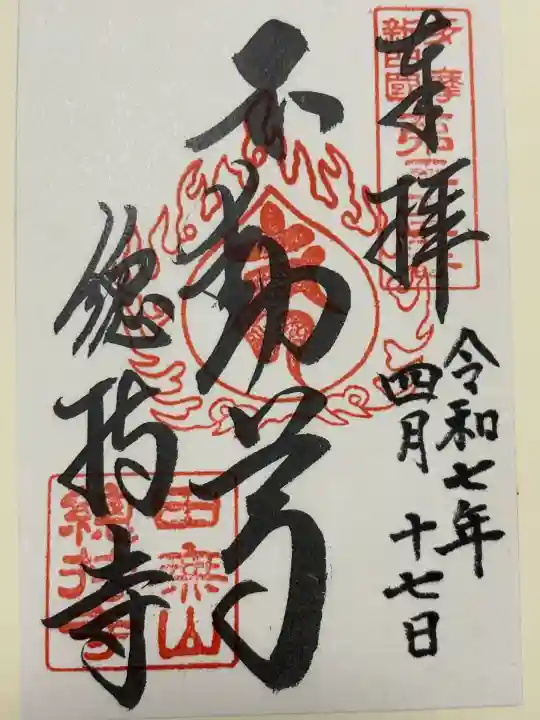 奉拝
令和七年
四月十七日
不動尊
總持寺
田無山
總持寺